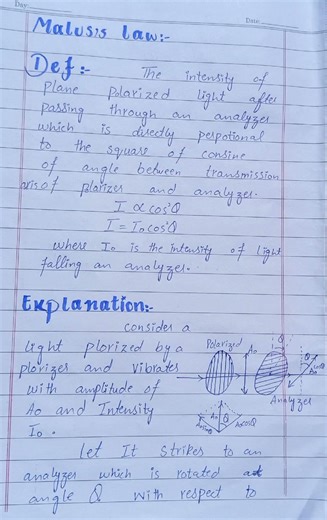 Day:
Date:
Malus's Law:-
① Def:- The intensity of
plane polarized light after
passing through an analyzer
which is directly perpotional
to the square of consine
of angle between transmission
axis of plorizer and analyzer.
I ∝ cos²Q
I = I₀cos²Q
where I₀ is the intensity of light
falling an analyzer.
Explanation:-
consider a
light plorized by a
plorizer and vibrates
with amplitude of
A₀ and Intensity
I₀.
Polarized
A₀
Q
Q
A₀cosQ
Analyzer
A₀
Q
A₀sinQ
A₀cosQ
let It strikes to an
analyzer which is rotated at
angle Q with respect to